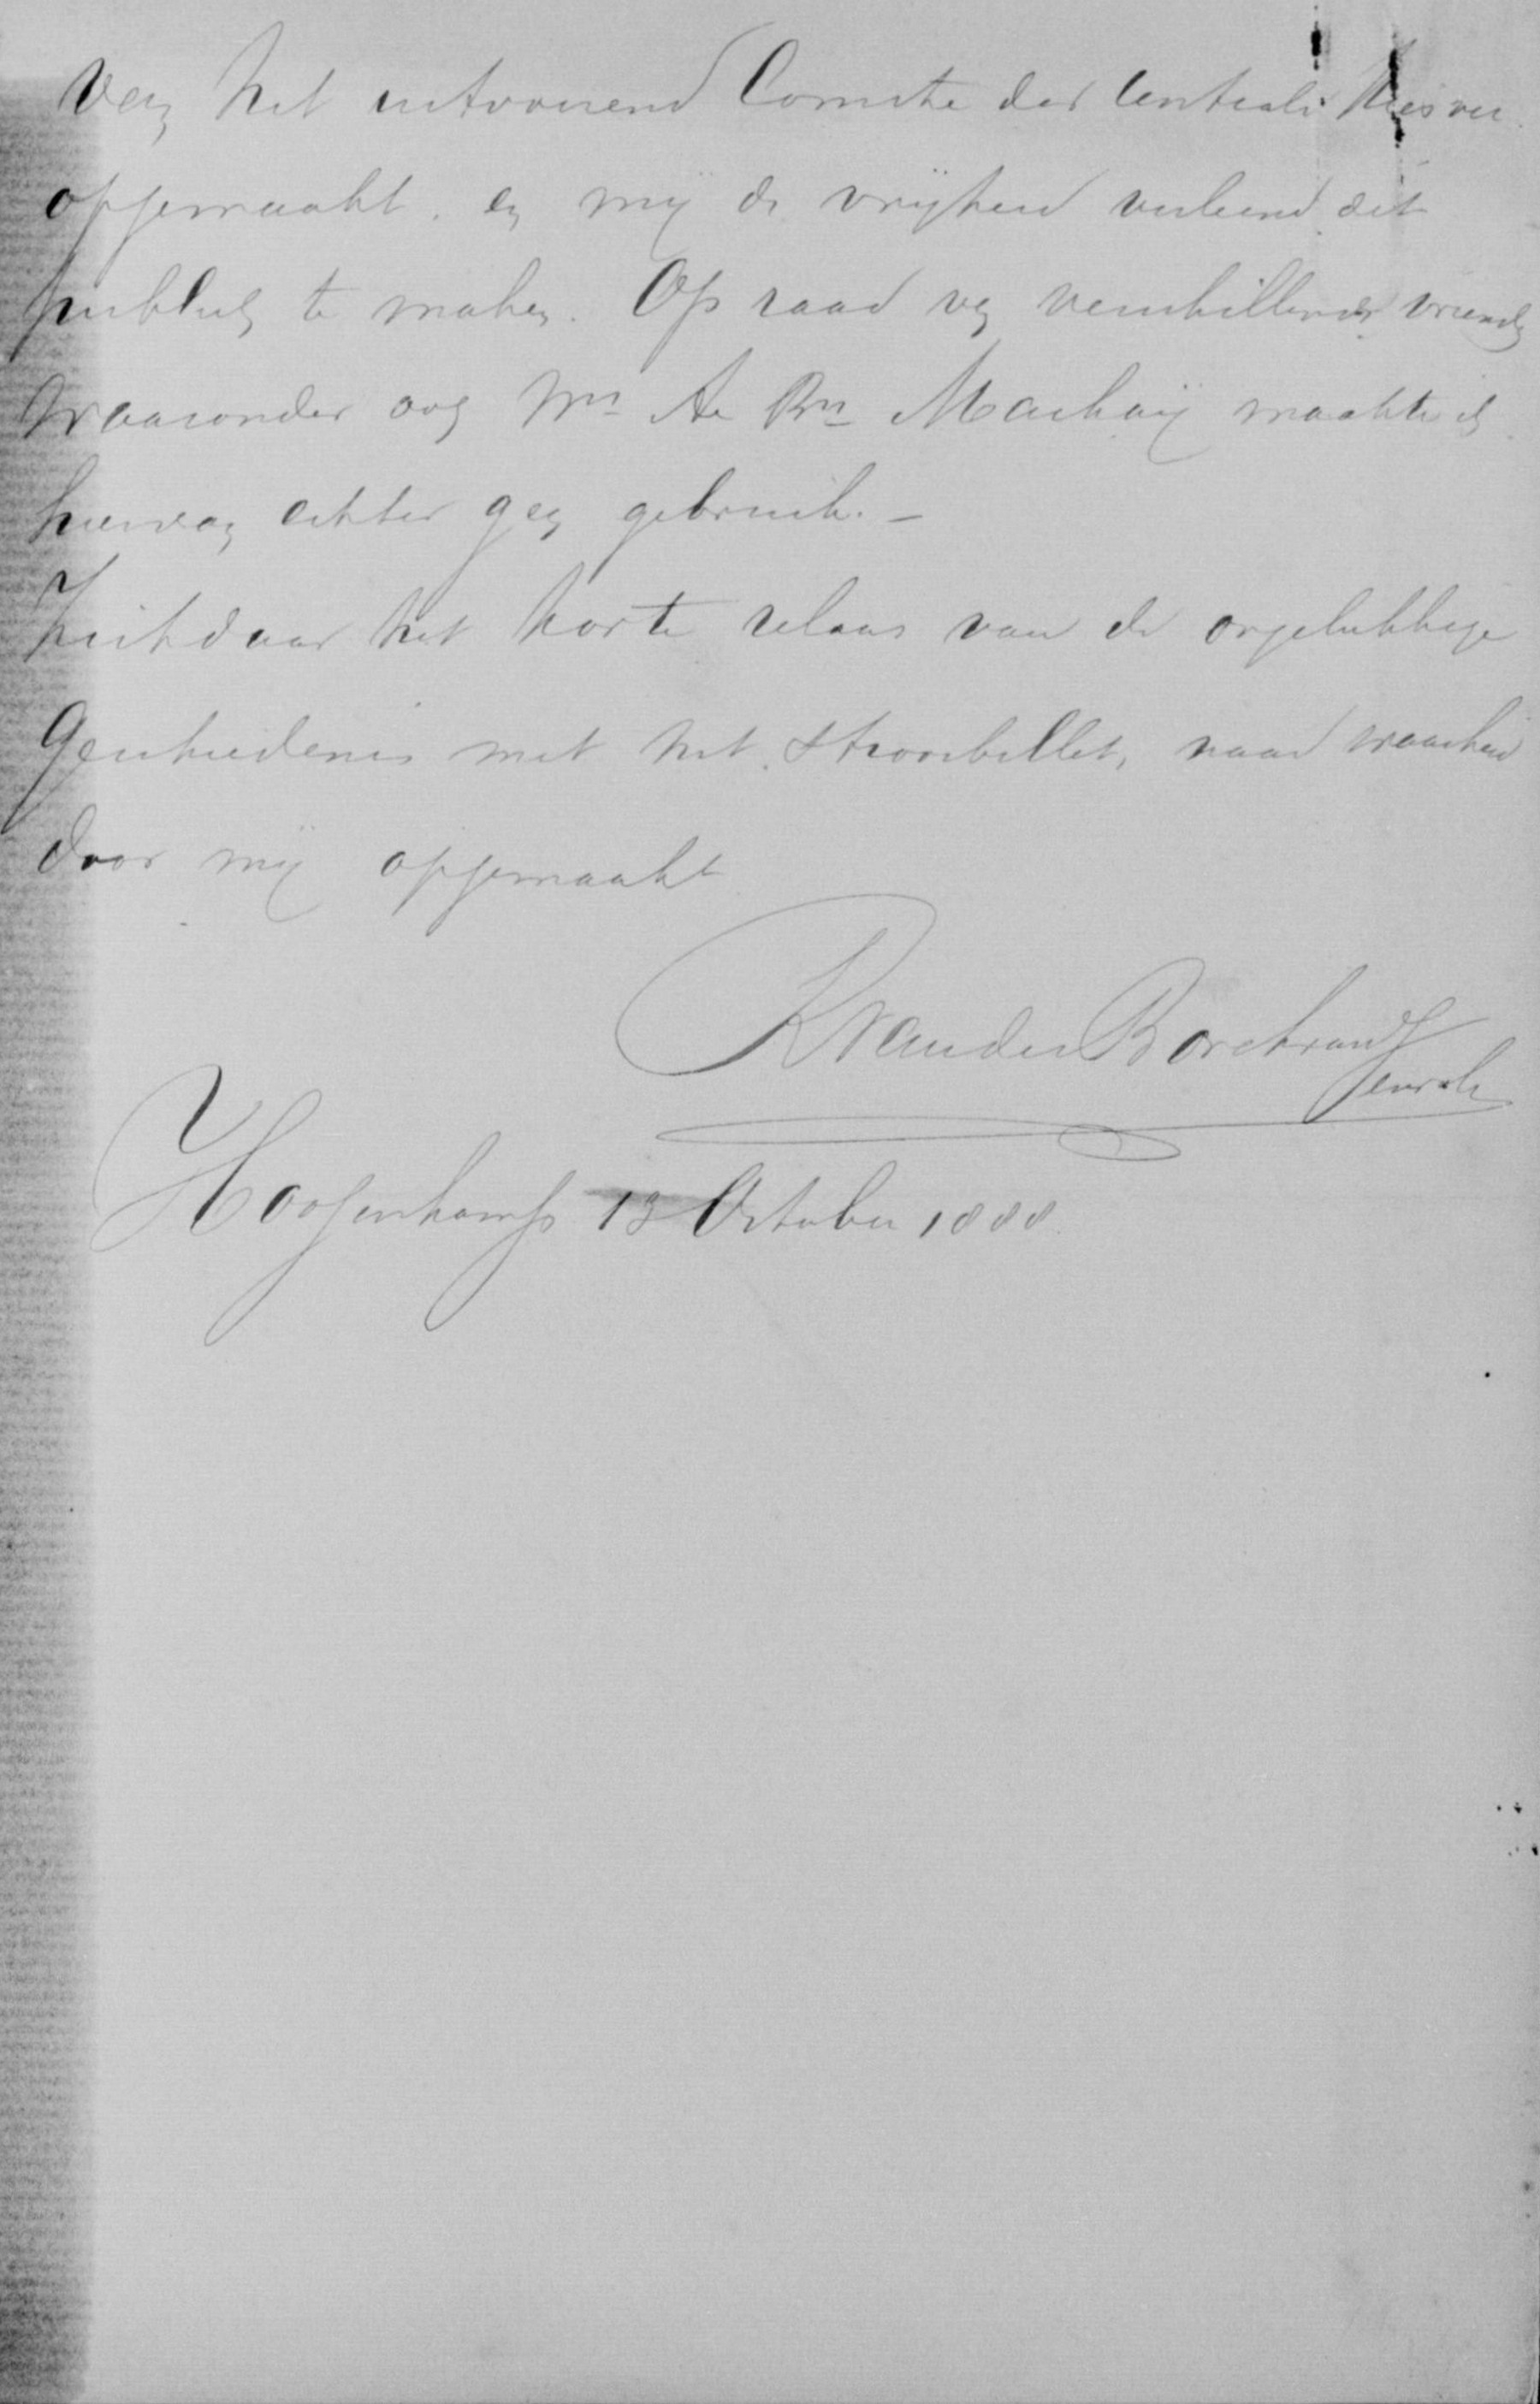 van het uitvoerend Comite der Centrale Kiesver.
opgemaakt. en mij de vrijheid verleend dit
publiek te maken. Op raad van verschillende vrienden
waaronder ook Mr Ae Bn Mackaij maakte ik
hiervan echter geen gebruik. –
Ziehdaar het korte relaas van de ongelukkige
Geschiedenis met het stroobillet, naar waarheid
door mij opgemaakt
Hoogenkamp 13 October 1888.